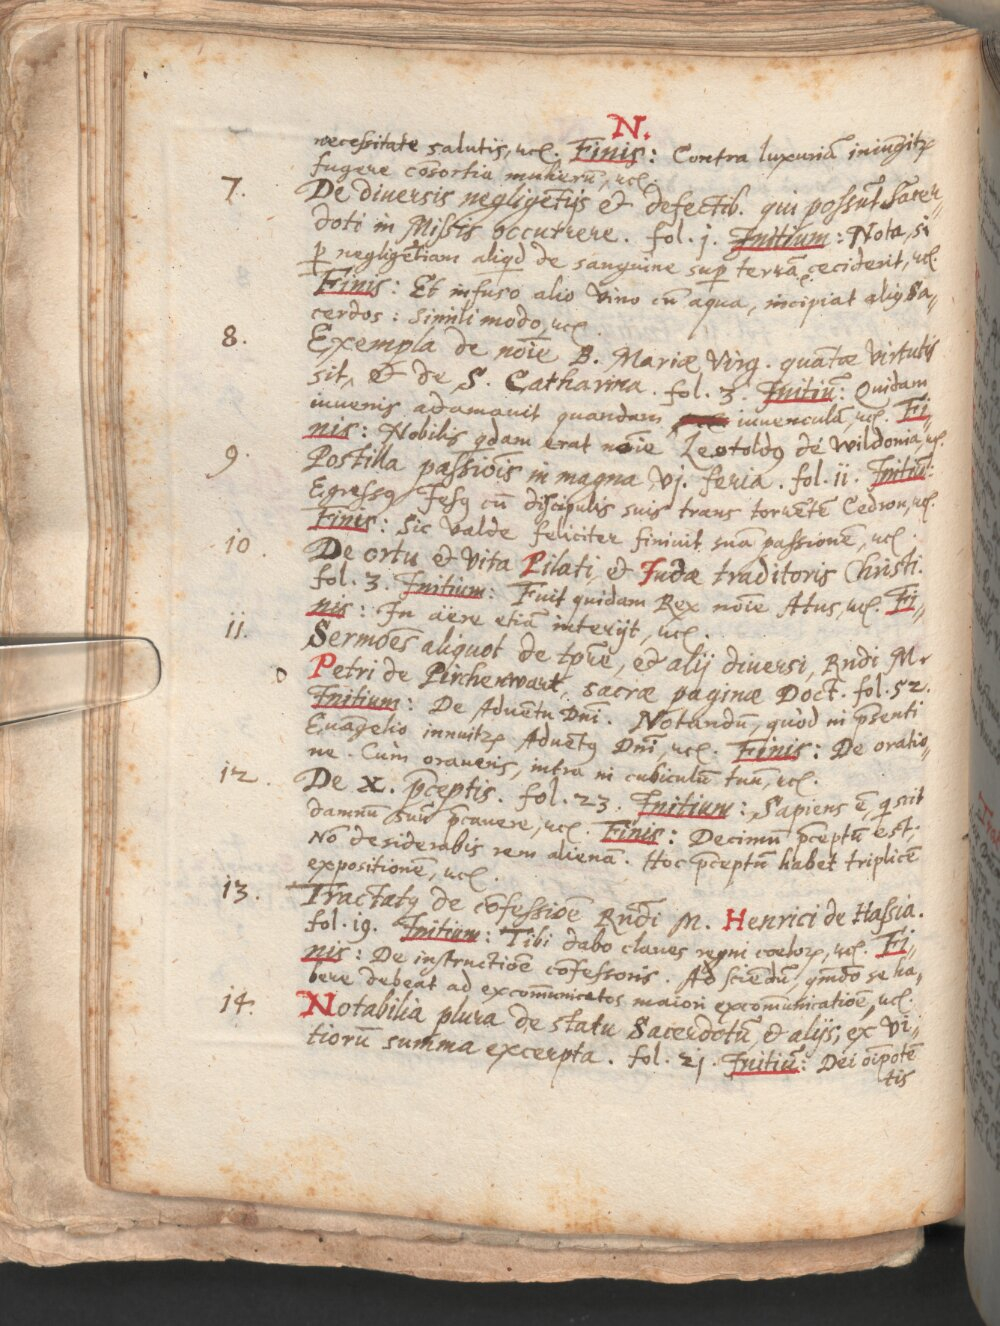 N.
necessitate salutis, ꝛc. Finis: Contra luxuriā iniūgitꝛ
fugere cōsortia mulierū, ꝛc.
7. De diuersis negligētijs et defectib. qui possūt Sacer„
doti in Missis occurrere. fol. j. Initium: Nota, si
ꝑ negligētiam aliqd de sanguine sup terrā ceciderit, ꝛc.
Finis: Et infuso alio vino cū aqua, incipiat aliꝰ Sa„
cerdos: Simili modo, ꝛc.
8. Exempla de noīe B. Mariæ Virg. quātæ virtutis
sit, et de S. Catharina. fol. 3. Initiū: Quidam
iuuenis adamauit quandam iuuenculā, ꝛc. Fi„
nis: Nobilis qdam erat noīe Leotoldꝰ de Wildonia, ꝛc.
9. Postilla passiois in magna vj. feria. fol. ii. Initiū:
Egressꝰ Jesꝰ cū discipulis suis trans torrētē Cedron, ꝛc.
Finis: Sic valde feliciter finiuit suā passionē, ꝛc.
10. De ortu et vita Pilati, et Judæ traditoris Christi.
fol. 3. Initium: Fuit quidam Rex noīe Atus, ꝛc. Fi„
nis: In aere etiā interijt, ꝛc.
ii. Sermōes aliquot de tpre, et alij diuersi, Rndi M.
Petri de Pirchenwart, sacræ paginæ Doct. fol. 52.
Initium: De Aduētu Dnī. Notandū, quòd in psenti
Euāgelio innuitꝛ Aduētꝰ Dnī, ꝛc. Finis: De oratio„
ne. Cùm oraueris, intra in cubiculū tuū, ꝛc.
12. De X. pceptis. fol. 23. Initium: Sapiens ē, q scit
damnū suū pcauere, ꝛc. Finis: Decimū pceptū est.
Nō desiderabis rem alienā. Hoc pceptū habet triplicē
expositionē, ꝛc.
13. Tractatꝰ de cōfessiōe Rndi M. Henrici de Hassia.
fol. 19. Initium: Tibi dabo claues regni coeloꝝ, ꝛc. Fi„
nis: De instructiōe cōfessoris. Ad sciēdū, qmdo se ha„
bere debeat ad excōmunicatos maiori excōmunicatiōe, ꝛc.
14. Notabilia plura de statu Sacerdotū, et alijs, ex Vi„
tiorū summa excerpta. fol. 21. Initiū: Dei oīpotē
tis